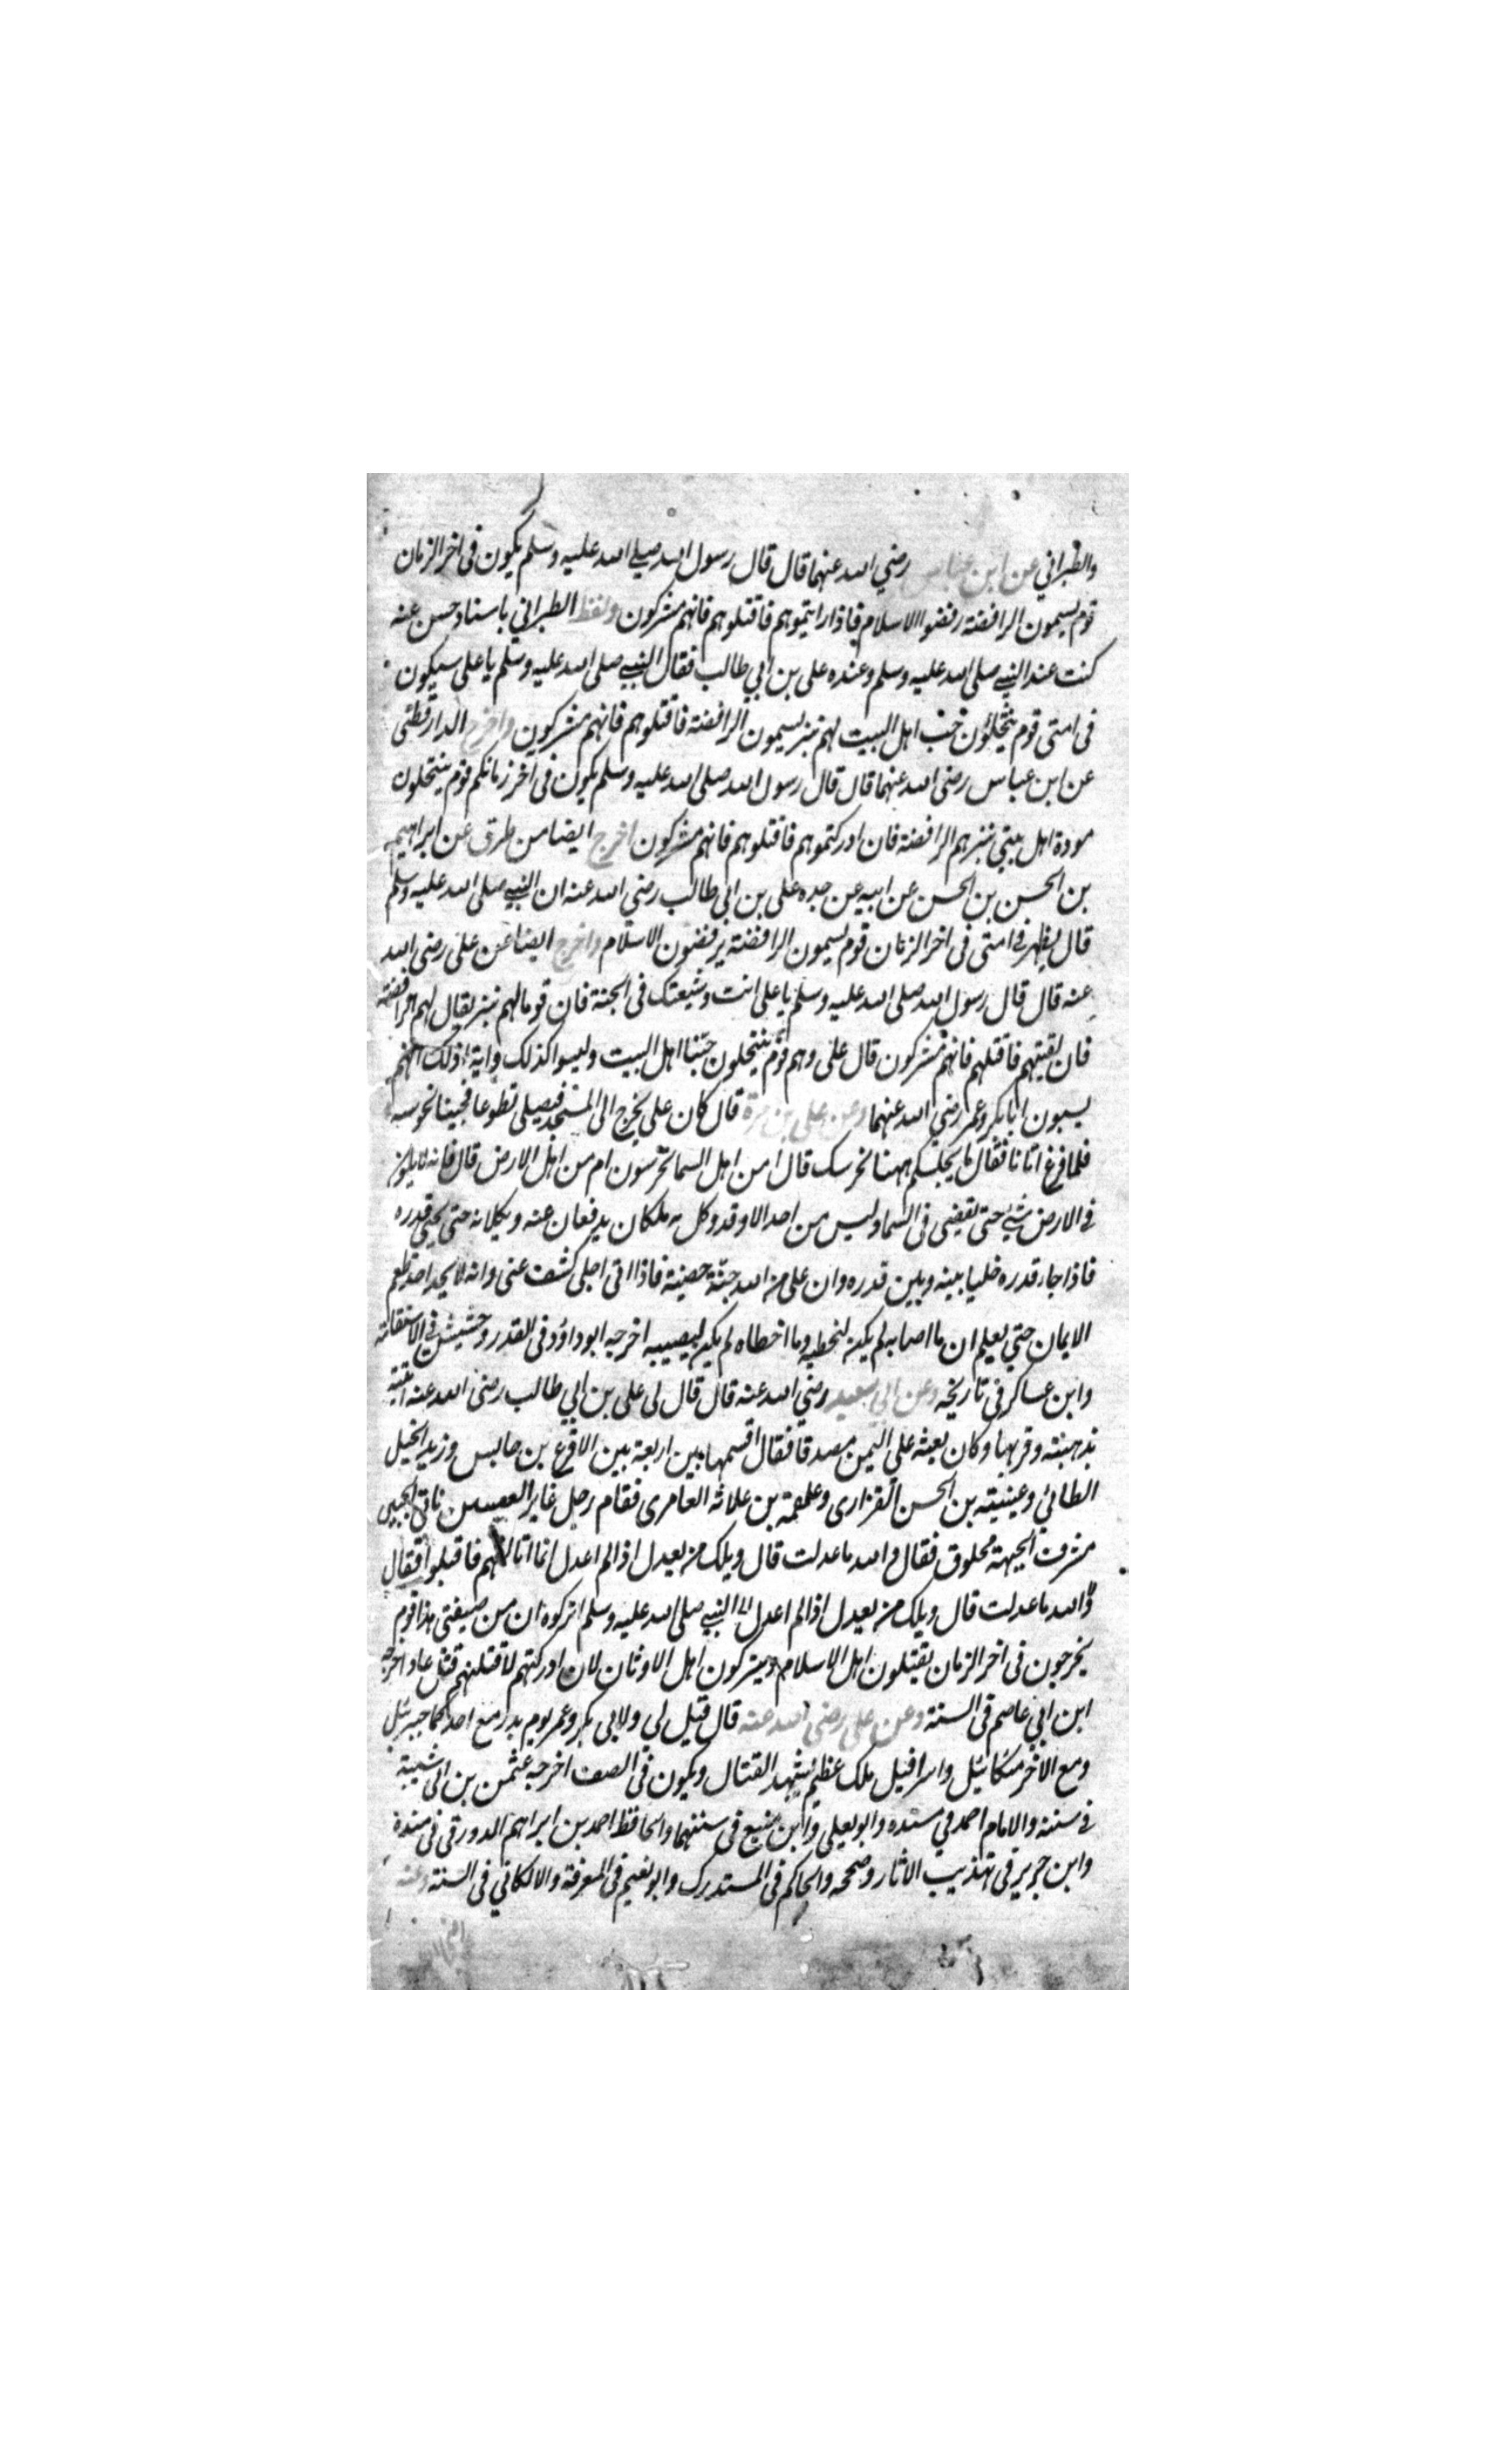 والطبراني عن ابن عباس رضي الله عنهما قال قال رسول الله صلى الله عليه وسلم يكون فى اخر الزمان
قوم يسمون الرافضة رفضوا الاسلام فاذا رايتموهم فاقتلوهم فانهم مشركون ولفظ الطبراني باسناد حسن عنه
كنت عند النبي صلى الله عليه وسلم وعنده على بن ابي طالب فقال النبي صلى الله عليه وسلم يا على سيكون
فى امتى قوم ينتحلون حب اهل البيت لهم نبز يسمون الرافضة فاقتلوهم فانهم مشركون واخرج الدارقطنى
عن ابن عباس رضى الله عنهما قال قال رسول الله صلى الله عليه وسلم يكون فى اخر زمانكم قوم ينتحلون
مودة اهل بيتي نبزهم الرافضة فان ادركتموهم فاقتلوهم فانهم مشركون اخرج ايضا من طرق عن ابراهيم
بن الحسن بن الحسن عن ابيه عن جده على بن ابى طالب رضي الله عنه ان النبي صلى الله عليه وسلم
قال يظهر فى امتى فى اخر الزمان قوم يسمون الرافضة يرفضون الاسلام واخرج ايضا عن على رضى الله
عنه قال قال رسول الله صلى الله عليه وسلم يا على انت وشيعتك فى الجنة فان قوما لهم نبز يقال لهم الرافضة
فان لقيتهم فاقتلهم فانهم مشركون قال على وهم قوم ينتحلون حبنا اهل البيت وليسوا كذلك واية ذلك انهم
يسبون ابا بكر وعمر رضي الله عنهما وعن على بن مرة قال كان على يخرج الى المسجد فيصلى تطوعا فجينا نحرسه
فلما فرغ اتانا فقال ما يجلسكم ههنا نحرسك قال امن اهل السما تحرسون ام من اهل الارض قال فانه لا يكون
فى الارض شئ حتى يقضى فى السما وليس من احد الا وقد وكل به ملكان يدفعان عنه ويكلانه حتى يجئ قدره
فاذا جاء قدره خليا بينه وبين قدره وان على من الله جنة حصينة فاذا اتى اجلى كشف عنى وانه لا يجد احد طعم
الايمان حتى يعلم ان ما اصابه لم يكن ليخطيه وما اخطاه لم يكن ليصيبه اخرجه ابو داود فى القدر وخشيش فى الاستقامة
وابن عساكر فى تاريخه وعن ابى سعيد رضي الله عنه قال قال لى على بن ابي طالب رضى الله عنه اتيته
بذهبته وقربها وكان بعثه على اليمن مصدقا فقال اقسمها بين اربعة بين الاقرع بن حابس وزيد الخيل
الطائي وعينيته بن الحسن الفزارى وعلقمة بن علاثه العامرى فقام رجل غاير العينين ناتى الجبين
مشرف الجبهة محلوق فقال والله ما عدلت قال ويلك من يعدل اذا لم اعدل انما اتالفهم فاقبلوا فقال
والله ما عدلت قال ويلك من يعدل اذا لم اعدل النبي صلى الله عليه وسلم اتركوه ان من ضيضى هذا قوم
يخرجون فى اخر الزمان يقتلون اهل الاسلام ويتركون اهل الاوثان لان ادركتهم لاقتلنهم قتل عاد اخرجه
ابن ابي عاصم فى السنة وعن على رضى الله عنه قال قيل لي ولابى بكر وعمر يوم بدر مع احدكما جبرئل
ومع الاخر ميكائيل واسرافيل ملك عظيم يشهد القتال ويكون فى الصف اخرجه عثمن بن ابى شيبة
فى سننه والامام احمد في مسنده وابو يعلى وابن منيع فى سننهما والحافظ احمد بن ابراهيم الدورقى فى مسنده
وابن جرير فى تهذيب الاثار وصححه والحاكم فى المستدرك وابو نعيم فى المعرفة والالكائي فى السنة وعنه